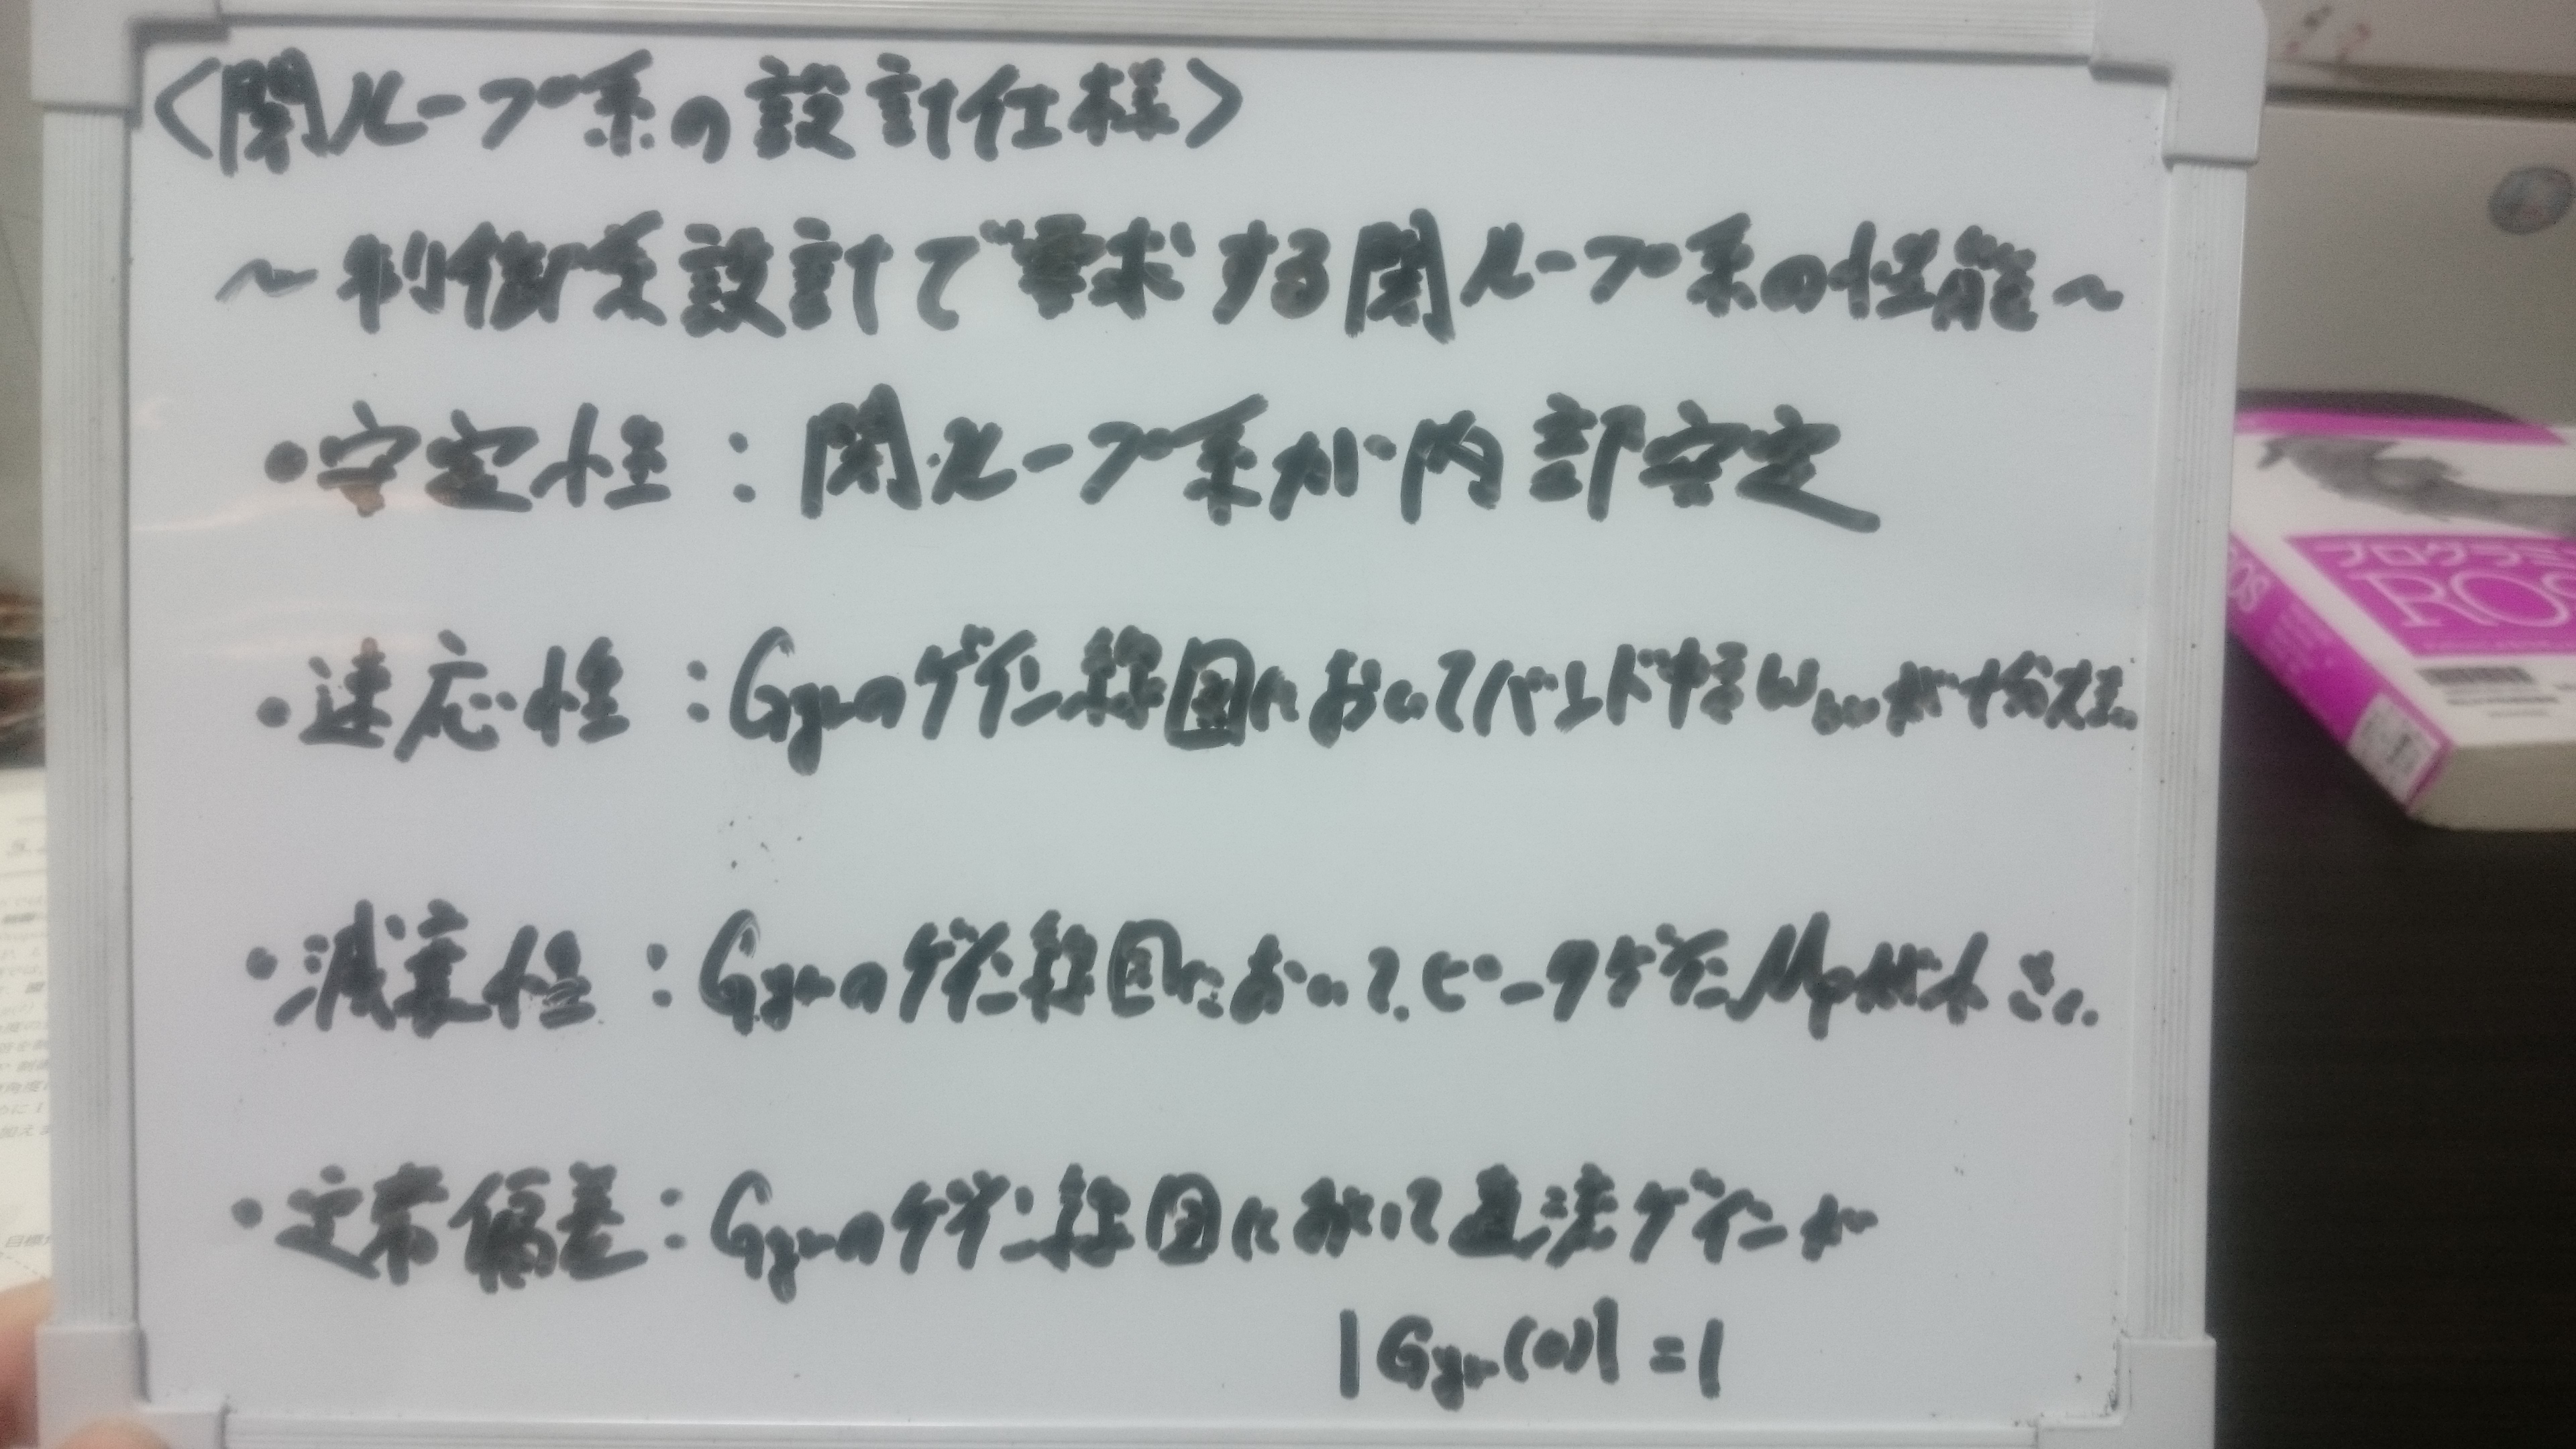 <閉ループ系の設計仕様>
~制御系設計で要求する閉ループ系の性能~
・安定性:閉ループ系が内部安定
・速応性:Gyrのゲイン線図においてバンド幅ωbwが十分大きい
・減衰性:Gyrのゲイン線図において、ピークゲインMpが小さい
・定常偏差:Gyrのゲイン線図において直流ゲインが
|Gyr(0)|=1
プログラミ
ROS
ROS